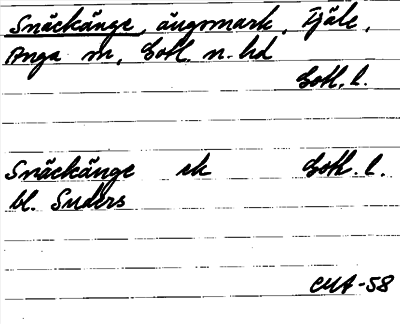 Snäckänge, ängsmark, Fjäle,
Anga sn, Gotl. n. hd
Gotl. l.
Snäckänge ek Gotl. l.
bl. Suders
CMA-58